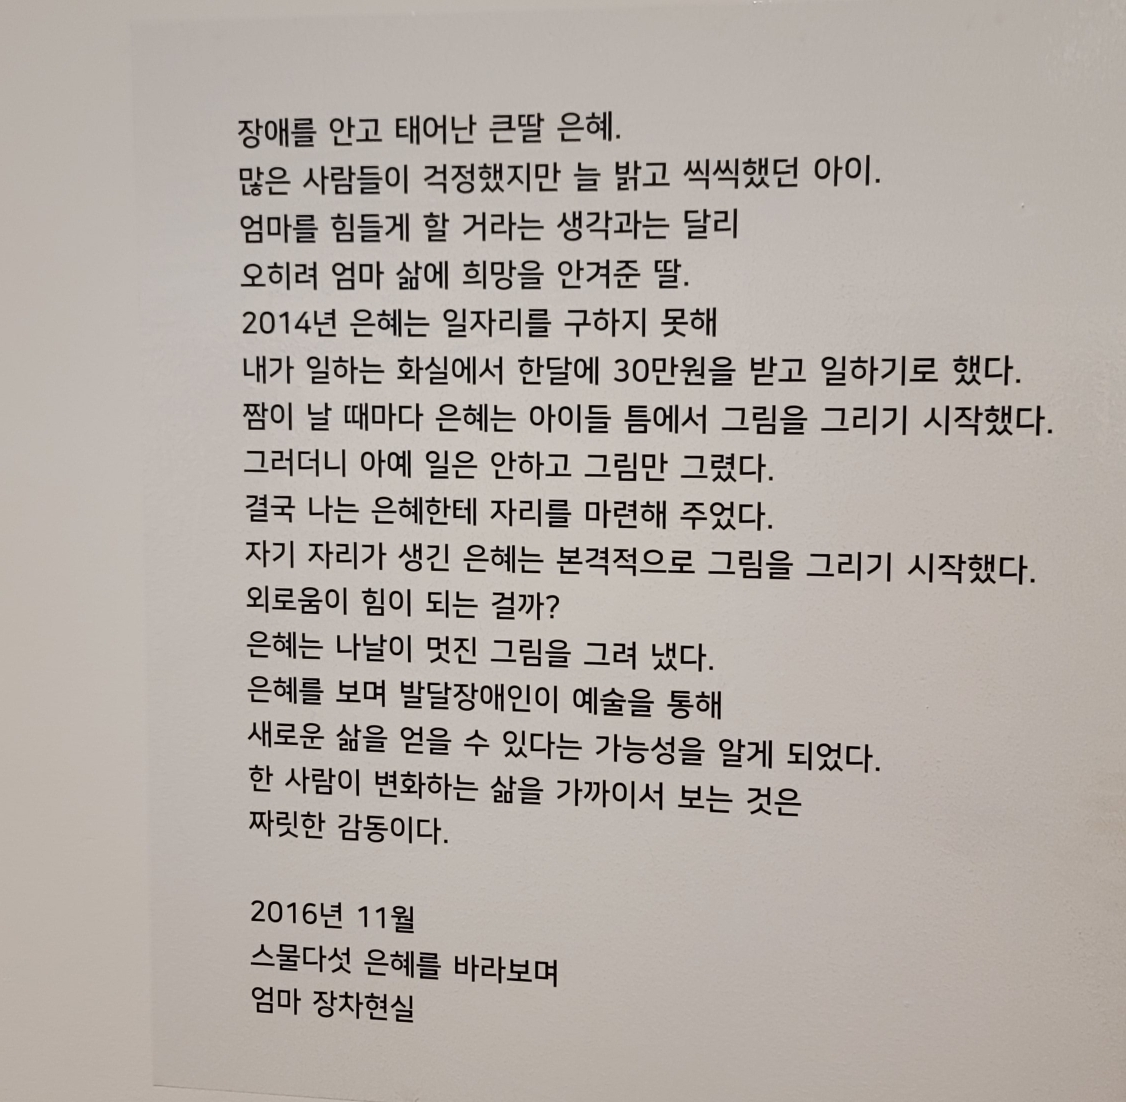 장애를 안고 태어난 큰딸 은혜.
많은 사람들이 걱정했지만 늘 밝고 씩씩했던 아이.
엄마를 힘들게 할 거라는 생각과는 달리
오히려 엄마 삶에 희망을 안겨준 딸.
2014년 은혜는 일자리를 구하지 못해
내가 일하는 화실에서 한달에 30만원을 받고 일하기로 했다.
짬이 날 때마다 은혜는 아이들 틈에서 그림을 그리기 시작했다.
그러더니 아예 일은 안하고 그림만 그렸다.
결국 나는 은혜한테 자리를 마련해 주었다.
자기 자리가 생긴 은혜는 본격적으로 그림을 그리기 시작했다.
외로움이 힘이 되는 걸까?
은혜는 나날이 멋진 그림을 그려 냈다.
은혜를 보며 발달장애인이 예술을 통해
새로운 삶을 얻을 수 있다는 가능성을 알게 되었다.
한 사람이 변화하는 삶을 가까이서 보는 것은
짜릿한 감동이다.
2016년 11월
스물다섯 은혜를 바라보며
엄마 장차현실